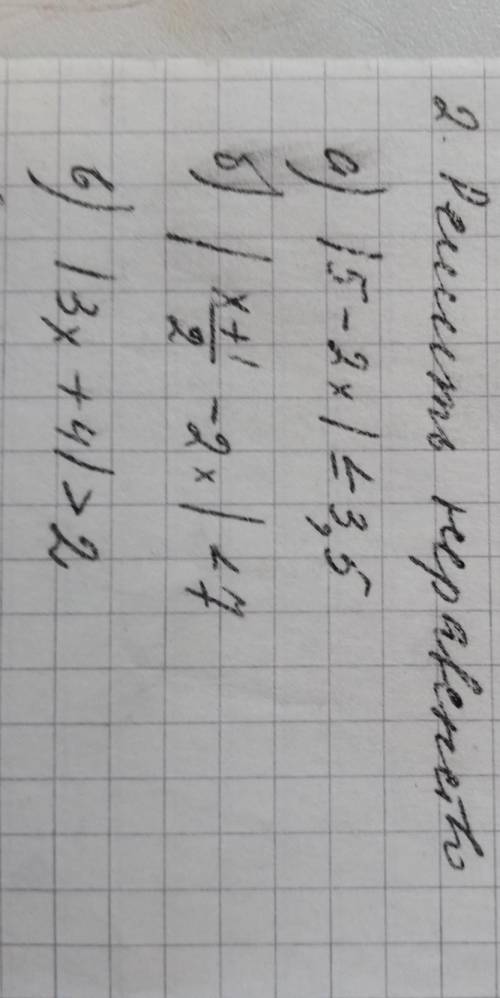 2. Решить неравенство
а) |5 - 2x| ≤ 3,5
б) |\frac{x+1}{2} - 2x| < 7
в) |3x + 4| > 2